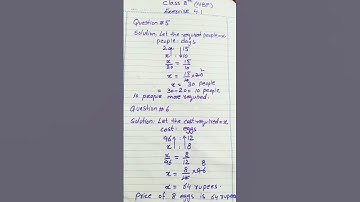 Class 8th (NBF)
Exercise 4.1
Question #5
Solution: Let the required people = x
people : days
20 15
x 10
x/20 = 15/10
x = 15/10 × 20 2
x = 30 people
= 30-20 = 10 people
is people more required.
Question #6
Solution: Let the cost required = x
cost : eggs
96 : 12
x : 8
x/96 = 8/12 8
x = 8/12 × 96
x = 64 rupees
price of 8 eggs is 64 rupees